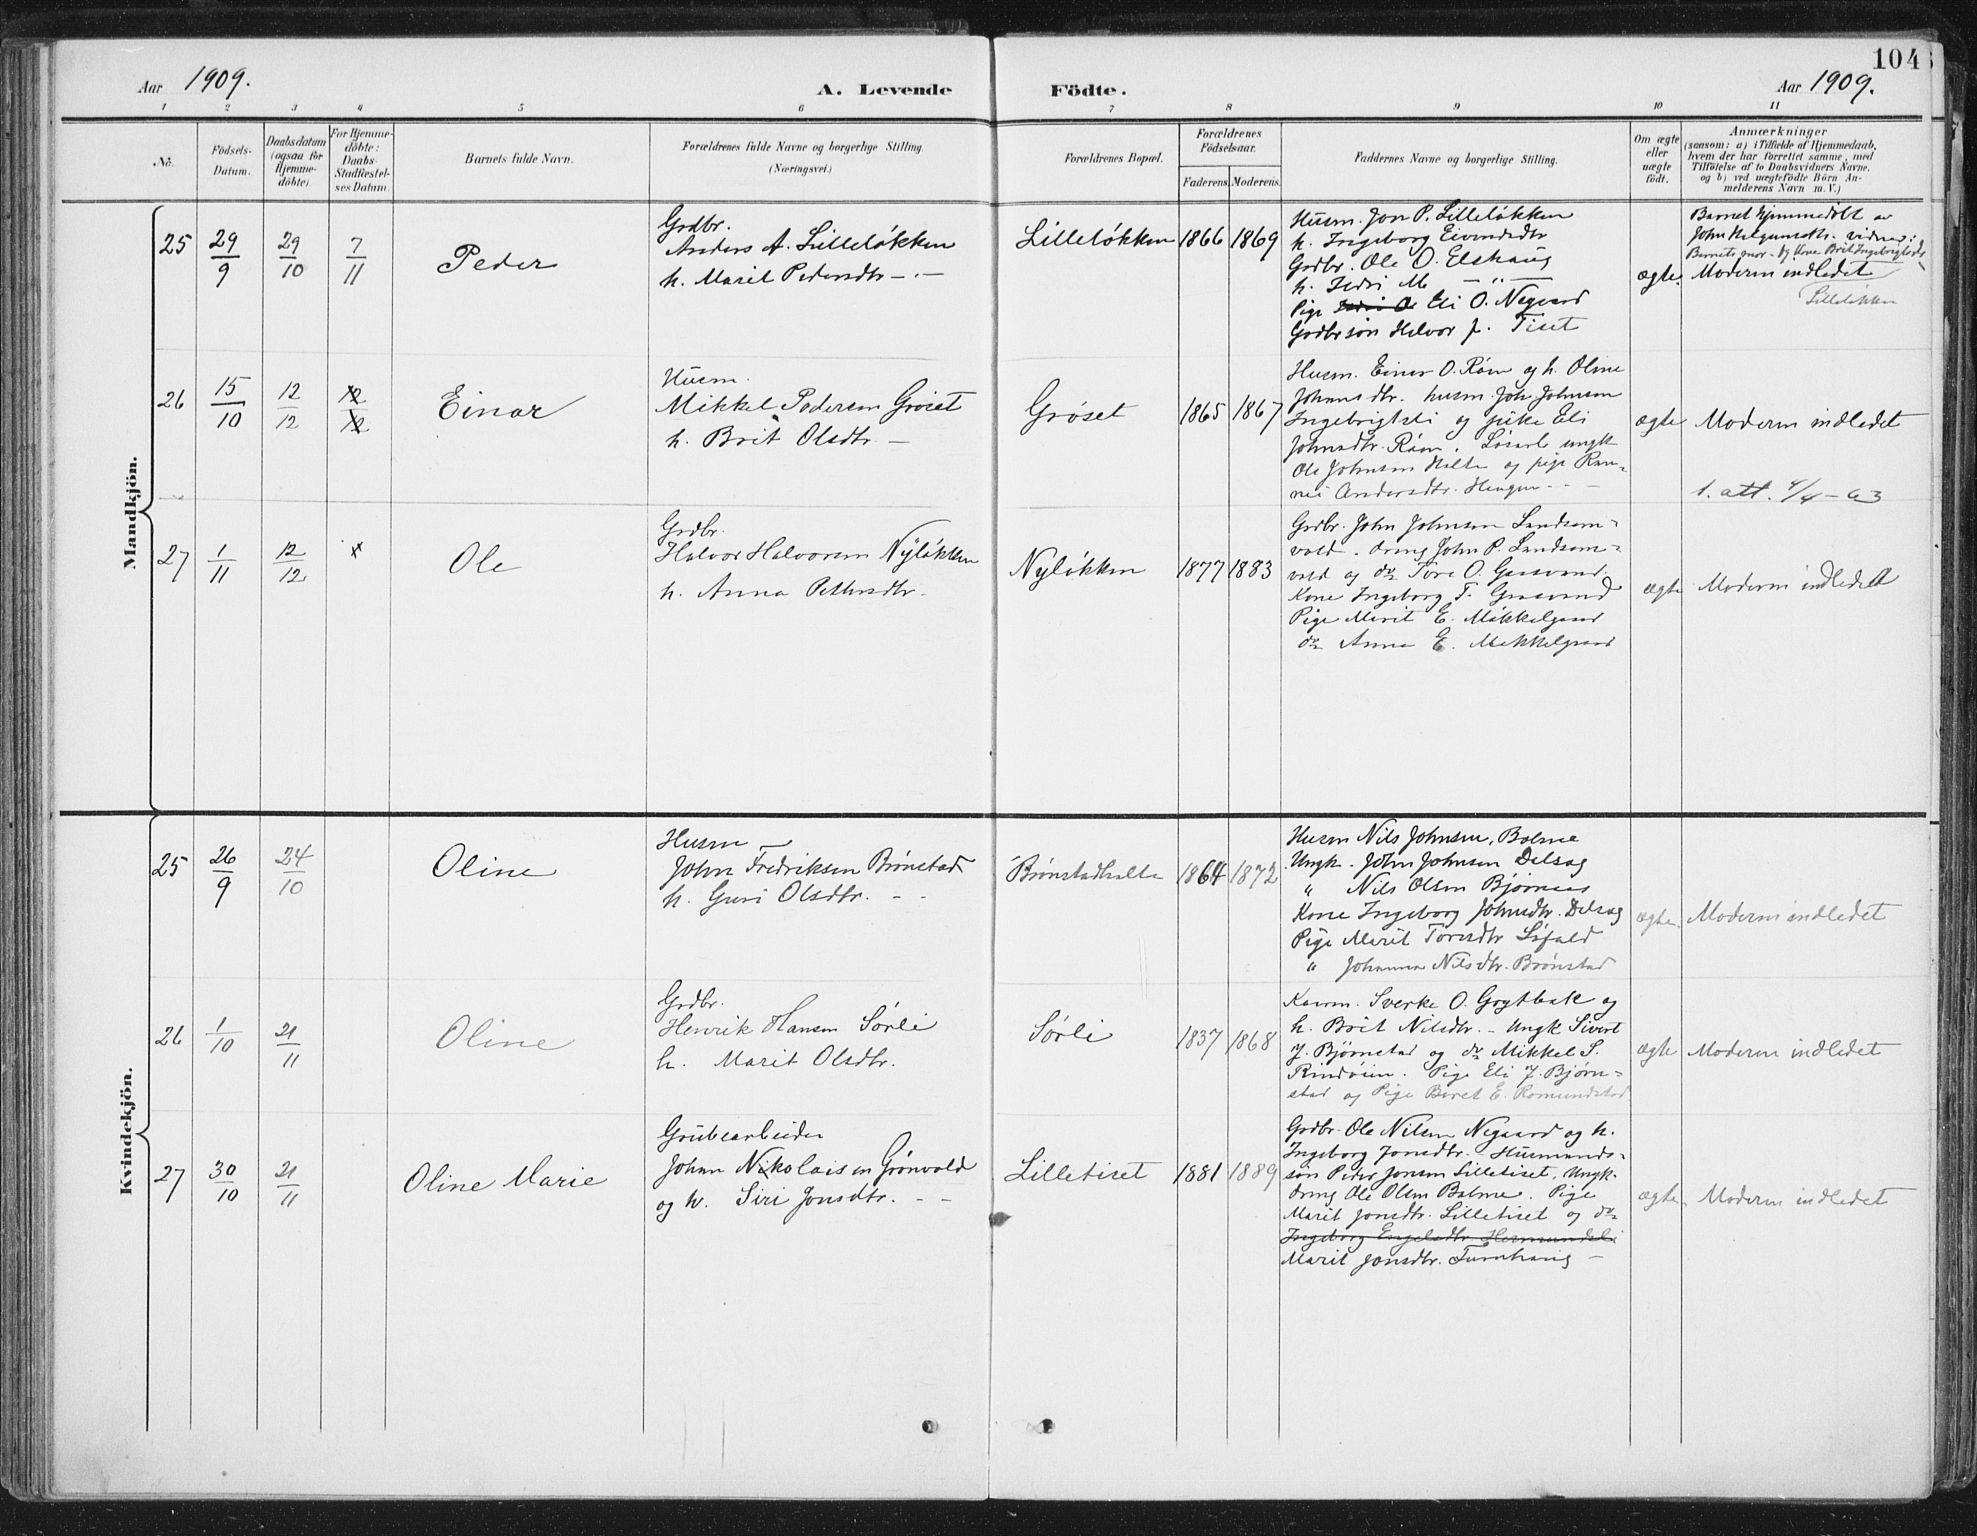 104
Aar 1909. A. Levende Födte. Aar 1909.
1 2 3 4 5 6 7 8 9 10 11
No.
Födsels-
Datum.
Daabsdatum
(ogsaa for
Hjemme-
döbte).
For Hjemme-
döbte:
Daabs-
Stadfæstel-
ses Datum.
Barnets fulde Navn.
Forældrenes fulde Navne og borgerlige Stilling
(Næringsvei.)
Forældrenes Bopæl.
Forældrenes
Födselsaar.
Faderens. Moderens.
Faddernes Navne og borgerlige Stilling.
Om ægte
eller
uægte
födt.
Anmærkninger
(saasom: a) i Tilfælde af Hjemmedaab,
hvem der har forrettet samme, med
Tilföielse af to Daabsvidners Navne.
og b) ved uægtefödte Börn An-
melderens Navn m. V.)
Mandkjön.
25 29/9 29/10 7/11 Peder
Grdbr.
Anders A. Lilleløkken
h. Marit Pedersdtr —
Lilleløkken 1866 1869
Husm. Jon P. Lilleløkken
h. Ingeborg Eivindsdtr
Grdbr. Ole O. Elshaug
h. Zedri M — " —
Pige Eli O. Negaard
Grdbrsøn Halvor J. Tiset
ægte.
Barnet hjemmedøbt av
John vidner:
Barnets mor og Kone Brit Ingebrigtsdtr
Lilleløkken
Moderen indledet
26 15/10 12/12 12/12 Einar
Husm.
Mikkel Pedersen Grøset
h. Brit Olsdtr. —
Grøset 1865 1867
Husm. Einar O. Røen og h. Oline
Johnsdtr. husm. Joh Johnsen
Ingebrigtsli og pike Eli
Johnsdtr. Røen. Løsarb. ungk
Ole Johnsen Holte og pige Ran-
nei Andersdtr. Haugen - - -
ægte Moderen indledet
1. att. 4/4 - 63
27 1/11 12/12 x Ole
Grdbr.
Halvor Halvorsen Nyløkken
h. Anna Petersdtr.
Nyløkken 1877 1883
Grdbr. John Johnsen Landsem-
vald. dreng John P. Landsem-
vald og do Tore O. Gaasvand.
Kone Ingeborg T. Graasvand
Pige Marit E. Mikkelgaard
do Anna E. Mikkelgaard
ægte Moderen indledet
Kvindekjön.
25 26/9 24/10 Oline
Husm —
John Fredriksen Brønstad
h. Guri Olsdtr. - -
Brønstadholte 1864 1872
Husm Nils Johnsen, Bolme
Ungk. John Johnsen Delsag
" Nils Olsen Bjørnaas
Kone Ingeborg Johnsdtr. Delsag
Pige Marit Toresdtr Løfald
" Johanna Nilsdtr. Brønstad
ægte Moderen indledet
26 1/10 21/11 Oline
Grdbr.
Henrik Hansen Sørli
h. Marit Olsdtr.
Sørli 1837 1868
Kaarm. Sverke O. Grytbak og
h. Brit Nilsdtr. - Ungk Sivert
J. Bjørnstad og do Mikkel S.
Rindøien. Pige Eli J. Bjørn-
stad og Pige Beret E. Romundstad
ægte Moderen indledet
27 30/10 21/11 Oline Marie
Grubearbeider
Johan Nikolaisen Grønvold
og h. Siri Jonsdtr. - -
Lilletiset 1881 1889
Grdbr. Ole Nilsen Negaard og h.
Ingeborg Jonsdtr. Husmands-
søn Peder Jonsen Lilletiset, Ungk.
dreng Ole Olsen Bolme. Pige
Marit Jonsdtr. Lilletiset og do
Ingeborg Engelsdtr. Hermundsli
Marit Jonsdtr. Turnhaug —
ægte Moderen indledet